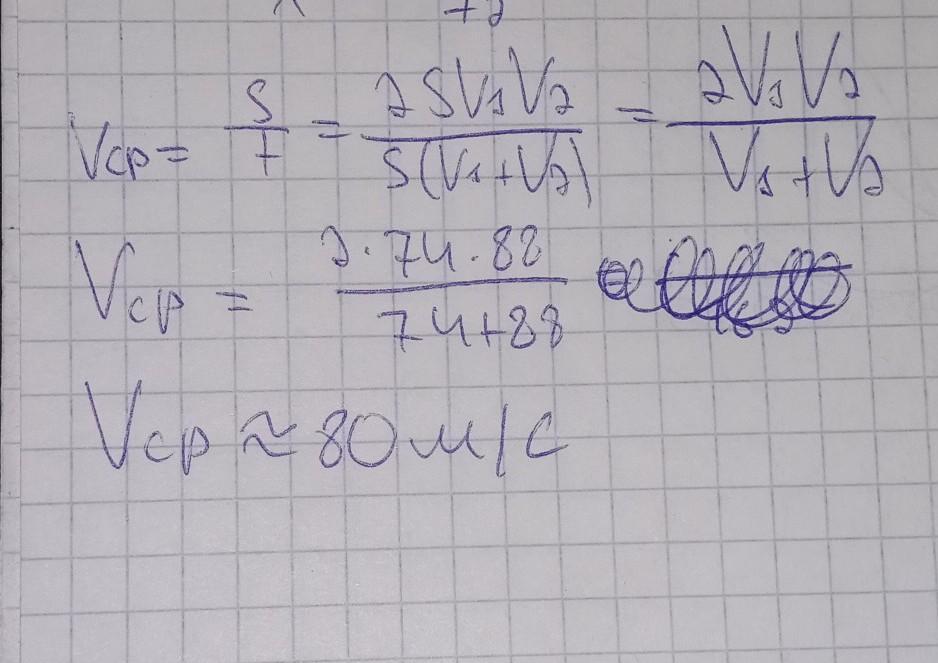 Vср = S/T = 2SV₁V₂/S(V₁+V₂) = 2V₁V₂/V₁+V₂
Vср = 2·74·88/74+88
Vср ≈ 80 м/с